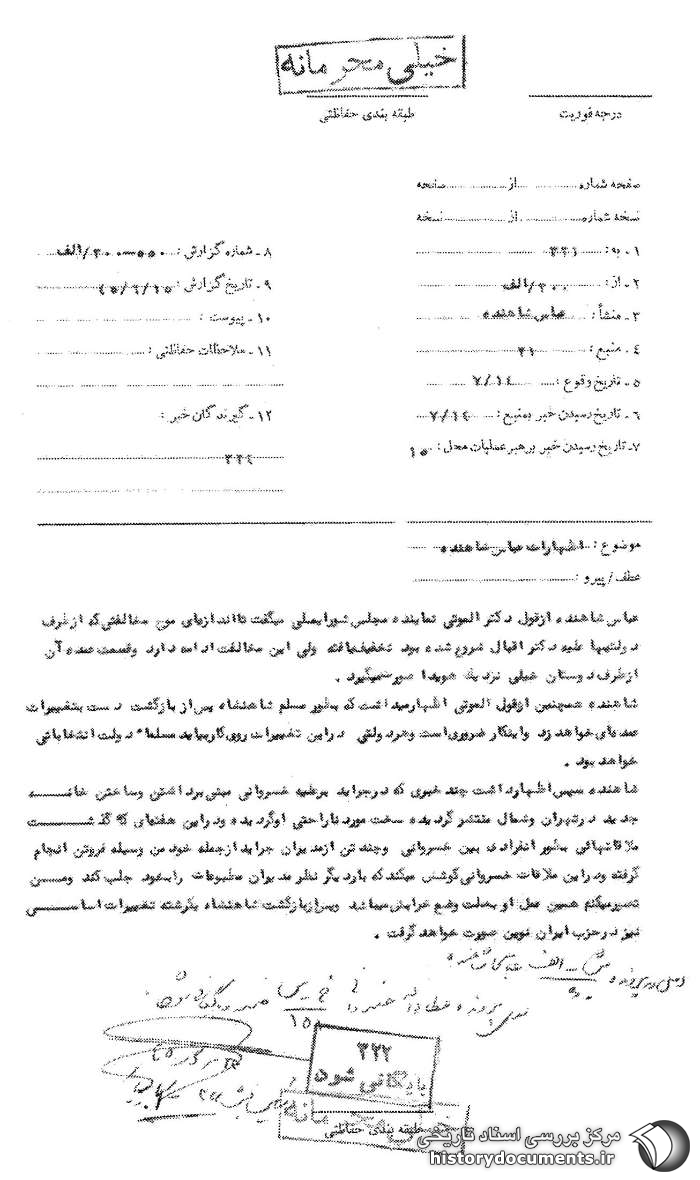 خیلی محرمانه
درجه فوریت
طبقه بندی حفاظتی
صفحه شماره از صفحه
نسخه شماره از نسخه
۱ - به : ۳۲۱
۲ - از : ۳۰۰/الف
۳ - منشأ : عباس شاهنده
۴ - منبع : ۲۱
۵ - تاریخ وقوع : ۷/۱۴
۶ - تاریخ رسیدن خبر بمنبع : ۷/۱۴
۷ - تاریخ رسیدن خبر برهبر عملیات محل : ۱۵
۸ - شماره گزارش :
۹ - تاریخ گزارش :
۱۰ - پیوست :
۱۱ - ملاحظات حفاظتی :
۱۲ - گیرندگان خبر :
۳۲۴
موضوع : اظهارات عباس شاهنده
عطف/پیرو :
عباس شاهنده ازقول دکتر الموتی نماینده مجلس شورایملی میگفت تااندازهای موج مخالفتی که ازطرف
دولتیها علیه دکتر اقبال شروع شده بود تخفیف یافته ولی این مخالفت ادامه دارد وقسمت عمده آن
ازطرف دوستان خیلی نزدیک هویدا صورت میگیرد .
شاهنده همچنین ازقول الموتی اظهارمیداشت که بطور مسلم شاهنشاه پس از بازگشت دست بتغییرات
عمدهای خواهد زد واینکار ضروری است وهردولتی دراین تغییرات روی کاربیاید مسلما" دولت انتخاباتی
خواهد بود .
شاهنده سپس اظهارداشت چند خبری که درجراید برعلیه خسروانی مبنی برداشتن وساختن خانه
جدید درتهران وشمال منتشر گردیده سخت موردناراحتی اوگردیده ودراین هفتهای که گذشت
ملاقاتهائی بطور انفرادی بین خسروانی وچند تن ازمدیران جراید ازجمله خود من وسیله فروتن انجام
گرفته ودراین ملاقات خسروانی کوشش میکند که باردیگر نظر مدیران مطبوعات رابخود جلب کند ومن
تصورمیکنم همین عمل او بعلت وضع خرابش میباشد وپس ازبازگشت شاهنشاه یکرشته تغییرات اساسی
نیز درحزب ایران نوین صورت خواهد گرفت .
۳۲۲
بایگانی شود
خیلی محرمانه
طبقه بندی حفاظتی
مرکز بررسی اسناد تاریخی
historydocuments.ir